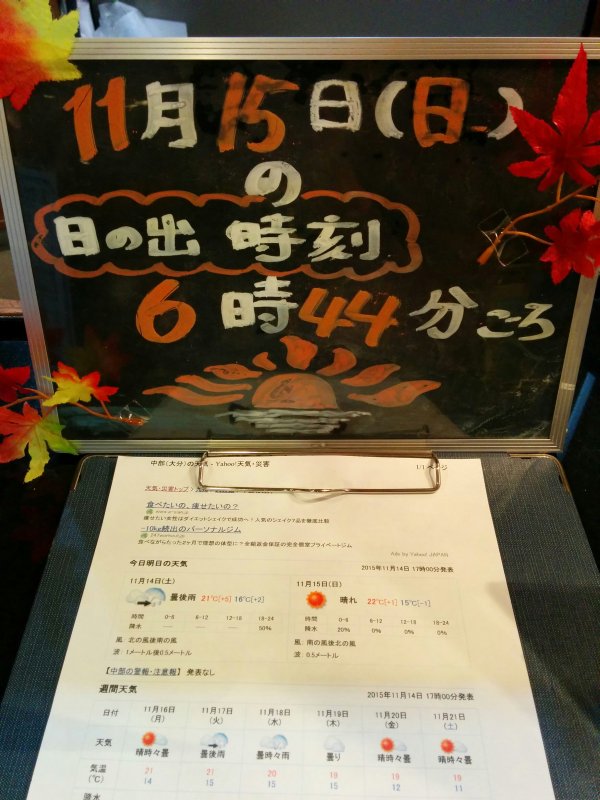 11月15日(日)
の
日の出 時刻
6時44分ごろ
中部(大分)の天気 - Yahoo!天気・災害
1/1 ページ
天気・災害トップ >
食べたいの、痩せたいの？
痩せたい女性はダイエットシェイクで成功へ！人気のシェイク7品を徹底比較
-10kg続出のパーソナルジム
食べながらたった2ヶ月で理想の体型に？全額返金保証の完全個室プライベートジム
Ads by Yahoo! JAPAN
今日明日の天気
2015年11月14日 17時00分発表
11月14日(土)
曇後雨 21℃[+5] 16℃[+2]
時間 0-6 6-12 12-18 18-24
降水 --- --- --- 50%
風: 北の風後南の風
波: 1メートル後0.5メートル
11月15日(日)
晴れ 22℃[+1] 15℃[-1]
時間 0-6 6-12 12-18 18-24
降水 20% 0% 0% 0%
風: 南の風後北の風
波: 0.5メートル
【中部の警報・注意報】 発表なし
週間天気
2015年11月14日 17時00分発表
日付 11月16日(月) 11月17日(火) 11月18日(水) 11月19日(木) 11月20日(金) 11月21日(土)
天気 晴時々曇 曇後雨 曇時々雨 曇り 晴時々曇 晴時々曇
気温(℃) 21 21 20 18 19 19
14 15 15 15 12 11
降水